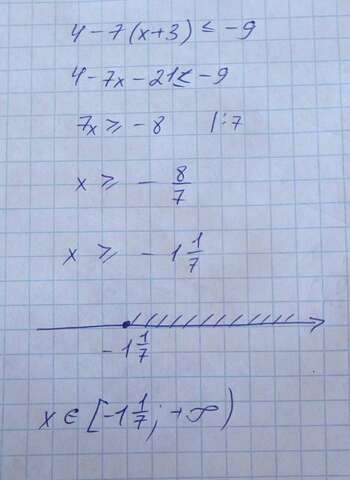 4 - 7(x+3) ≤ -9
4 - 7x - 21 ≤ -9
7x ≥ -8 |:7
x ≥ - 8/7
x ≥ - 1 1/7
- 1 1/7
x ∈ [-1 1/7; +∞)